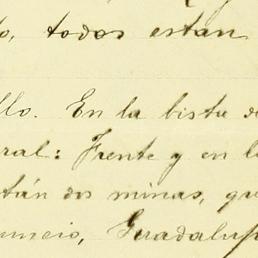 o, todos estan
llo. En la bista de
ral: Frente y en l
tán dos minas, que
uncio, Guadalup